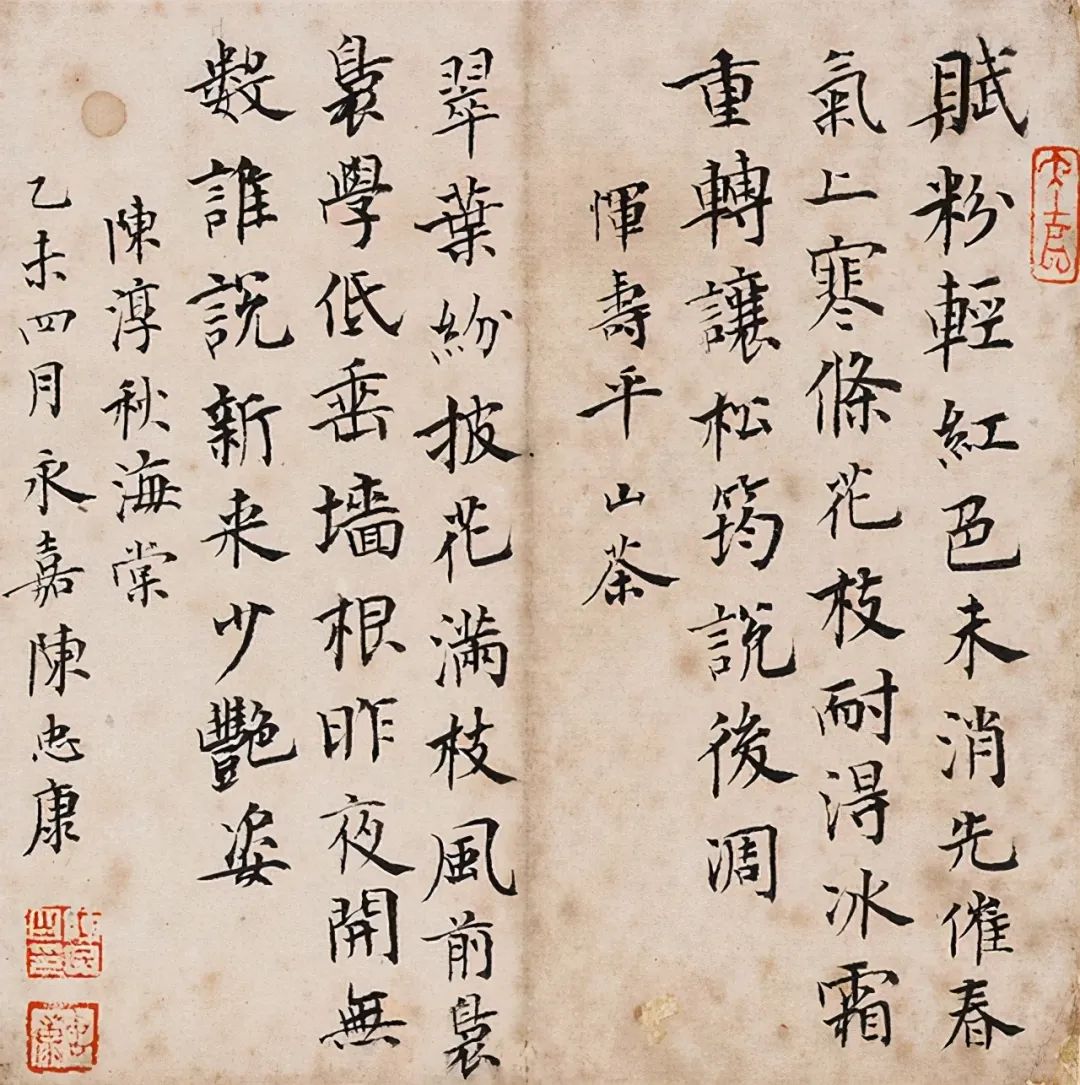 賦粉輕紅色未消先催春
氣上寒條花枝耐得冰霜
重轉讓松筠說後凋
惲壽平 山茶
翠葉紛披花滿枝風前裊
裊學低垂墙根昨夜開無
數誰説新来少艷姿
陳淳秋海棠
乙未四月永嘉陳忠康